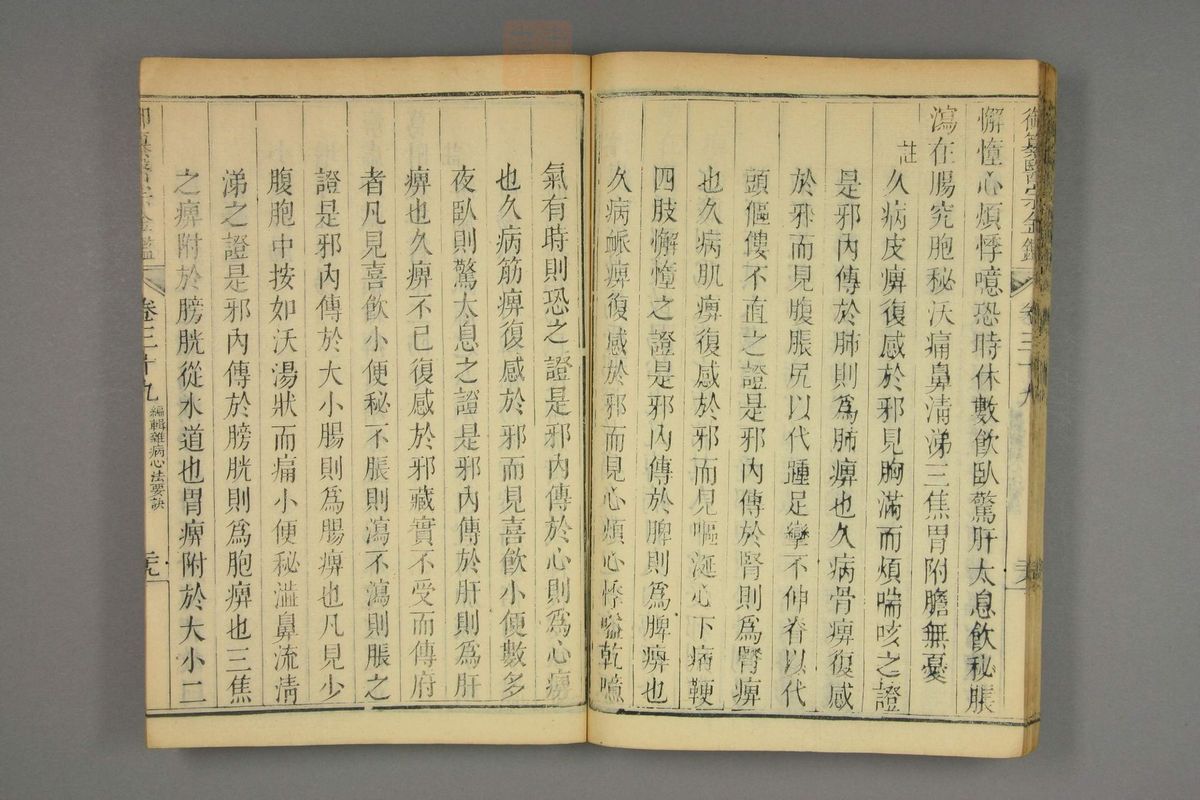 御纂醫宗金鑑 卷三十九
懈憧心煩悸噫恐時休數飲臥驚肝太息飲秘脹
瀉在腸究胞秘沃痛鼻清涕三焦胃附膽無憂
註
久病皮痹復感於邪見胸滿而煩喘咳之證
是邪內傳於肺則為肺痹也久病骨痹復感
於邪而見腹脹尻以代踵足攣不伸脊以代
頭傴僂不直之證是邪內傳於腎則為腎痹
也久病肌痹復感於邪而見嘔涎心下痞鞕
四肢懈憧之證是邪內傳於脾則為脾痹也
久病脈痹復感於邪而見心煩心悸嗌乾噫
氣有時則恐之證是邪內傳於心則為心痹
也久病筋痹復感於邪而見喜飲小便數多
夜臥則驚太息之證是邪內傳於肝則為肝
痹也久痹不已復感於邪藏實不受而傳府
者凡見喜飲小便秘不脹則瀉不瀉則脹之
證是邪內傳於大小腸則為腸痹也凡見少
腹胞中按如沃湯狀而痛小便秘澁鼻流清
涕之證是邪內傳於膀胱則為胞痹也三焦
之痹附於膀胱從水道也胃痹附於大小二
御纂醫宗金鑑 卷三十九 編輯雜病心法要訣